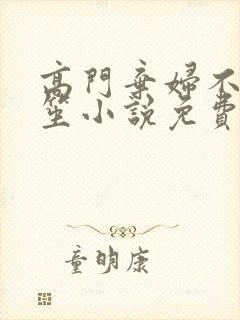 高門棄婦不
笙小說免費
童明康